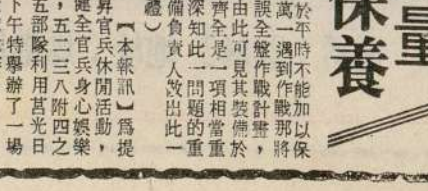 量
保養
於平時不能加以保
萬一遇到作戰那將
誤全盤作戰計畫，
由此可見其裝備於
齊全是一項相當重
深知此一問題的重
備負責人出此一
禮）
【本報訊】爲提
昇官兵休閒活動，
健全官兵身心娛樂
，五二三八附四之
五部隊利用莒光日
下午特舉辦了一場